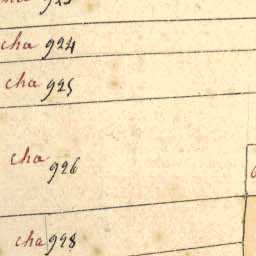 cha 924
cha 925
cha 926
cha 928